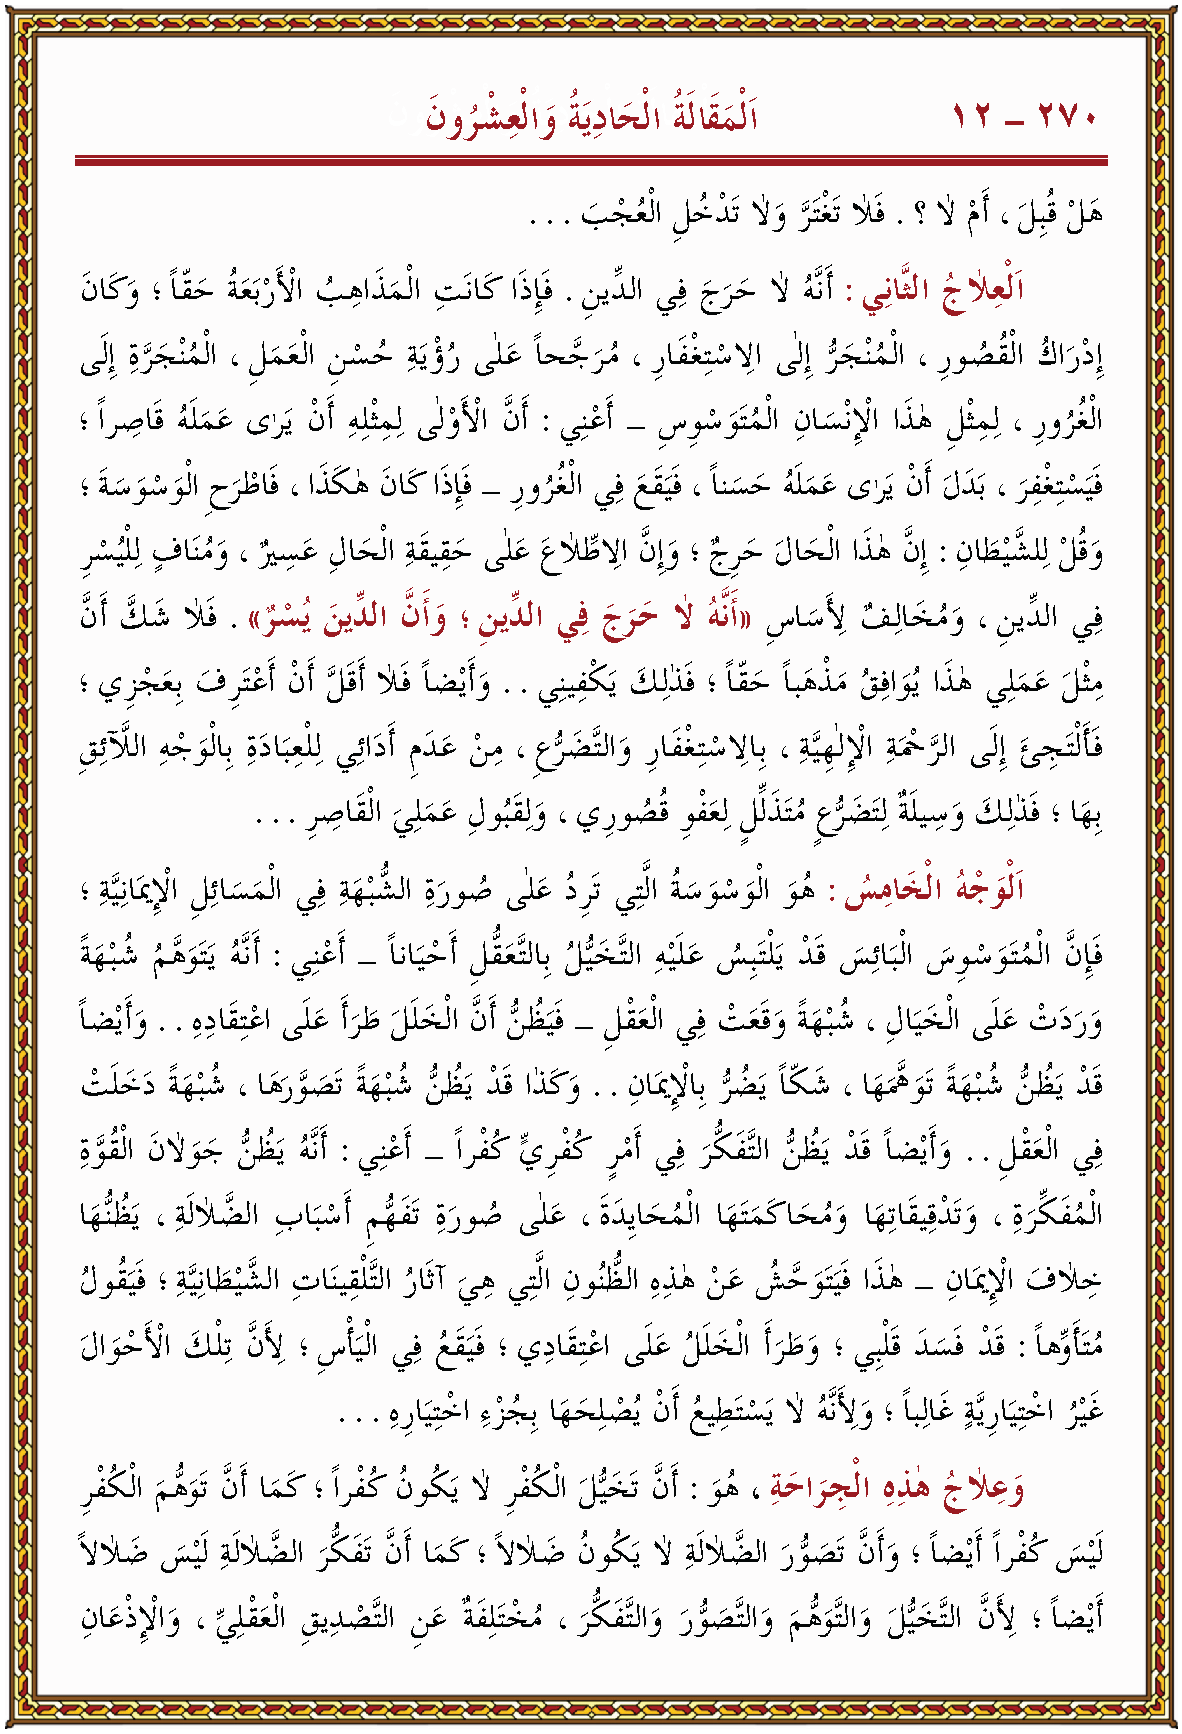 ٢٧٠ – ١٢ اَلْمَقَالَةُ الْحَادِيَةُ وَالْعِشْرُونَ
هَلْ قُبِلَ ، أَمْ لاٰ ؟ . فَلاٰ تَغْتَرَّ وَلاٰ تَدْخُلِ الْعُجْبَ . . .
اَلْعِلاٰجُ الثَّانِي : أَنَّهُ لاٰ حَرَجَ فِي الدِّينِ . فَإِذَا كَانَتِ الْمَذَاهِبُ الْأَرْبَعَةُ حَقّاً ؛ وَكَانَ
إِدْرَاكُ الْقُصُورِ ، الْمُنْجَرُّ إِلَى الْاِسْتِغْفَارِ ، مُرَجَّحاً عَلٰى رُؤْيَةِ حُسْنِ الْعَمَلِ ، الْمُنْجَرَّةِ إِلَى
الْغُرُورِ ، لِمِثْلِ هٰذَا الْإِنْسَانِ الْمُتَوَسْوِسِ – أَعْنِي : أَنَّ الْأَوْلٰى لِمِثْلِهِ أَنْ يَرٰى عَمَلَهُ قَاصِراً ؛
فَيَسْتِغْفِرَ ، بَدَلَ أَنْ يَرٰى عَمَلَهُ حَسَناً ، فَيَقَعَ فِي الْغُرُورِ – فَإِذَا كَانَ هٰكَذَا ، فَاطْرَحِ الْوَسْوَسَةَ ؛
وَقُلْ لِلشَّيْطَانِ : إِنَّ هٰذَا الْحَالَ حَرِجٌ ؛ وَإِنَّ الِاطِّلاٰعَ عَلٰى حَقِيقَةِ الْحَالِ عَسِيرٌ ، وَمُنَافٍ لِلْيُسْرِ
فِي الدِّينِ ، وَمُخَالِفٌ لِأَسَاسِ «أَنَّهُ لاٰ حَرَجَ فِي الدِّينِ ؛ وَأَنَّ الدِّينَ يُسْرٌ» . فَلاٰ شَكَّ أَنَّ
مِثْلَ عَمَلِي هٰذَا يُوَافِقُ مَذْهَباً حَقّاً ؛ فَذٰلِكَ يَكْفِينِي . . وَأَيْضاً فَلاٰ أَقَلَّ أَنْ أَعْتَرِفَ بِعَجْزِي ؛
فَأَلْتَجِئَ إِلَى الرَّحْمَةِ الْإِلٰهِيَّةِ ، بِالِاسْتِغْفَارِ وَالتَّضَرُّعِ ، مِنْ عَدَمِ أَدَائِي لِلْعِبَادَةِ بِالْوَجْهِ اللَّآئِقِ
بِهَا ؛ فَذٰلِكَ وَسِيلَةٌ لِتَضَرُّعٍ مُتَذَلِّلٍ لِعَفْوِ قُصُورِي ، وَلِقَبُولِ عَمَلِيَ الْقَاصِرِ . . .
اَلْوَجْهُ الْخَامِسُ : هُوَ الْوَسْوَسَةُ الَّتِي تَرِدُ عَلٰى صُورَةِ الشُّبْهَةِ فِي الْمَسَائِلِ الْإِيمَانِيَّةِ ؛
فَإِنَّ الْمُتَوَسْوِسَ الْبَائِسَ قَدْ يَلْتَبِسُ عَلَيْهِ التَّخَيُّلُ بِالتَّعَقُّلِ أَحْيَاناً – أَعْنِي : أَنَّهُ يَتَوَهَّمُ شُبْهَةً
وَرَدَتْ عَلَى الْخَيَالِ ، شُبْهَةً وَقَعَتْ فِي الْعَقْلِ – فَيَظُنُّ أَنَّ الْخَلَلَ طَرَأَ عَلَى اعْتِقَادِهِ . . وَأَيْضاً
قَدْ يَظُنُّ شُبْهَةً تَوَهَّمَهَا ، شَكّاً يَضُرُّ بِالْإِيمَانِ . . وَكَذَا قَدْ يَظُنُّ شُبْهَةً تَصَوَّرَهَا ، شُبْهَةً دَخَلَتْ
فِي الْعَقْلِ . . وَأَيْضاً قَدْ يَظُنُّ التَّفَكُّرَ فِي أَمْرٍ كُفْرِيٍّ كُفْراً – أَعْنِي : أَنَّهُ يَظُنُّ جَوَلاٰنَ الْقُوَّةِ
الْمُفَكِّرَةِ ، وَتَدْقِيقَاتِهَا وَمُحَاكَمَتَهَا الْمُحَايِدَةَ ، عَلٰى صُورَةِ تَفَهُّمِ أَسْبَابِ الضَّلاٰلَةِ ، يَظُنُّهَا
خِلاٰفَ الْإِيمَانِ – هٰذَا فَيَتَوَحَّشُ عَنْ هٰذِهِ الظُّنُونِ الَّتِي هِيَ آثَارُ التَّلْقِينَاتِ الشَّيْطَانِيَّةِ ؛ فَيَقُولُ
مُتَأَوِّهاً : قَدْ فَسَدَ قَلْبِي ؛ وَطَرَأَ الْخَلَلُ عَلَى اعْتِقَادِي ؛ فَيَقَعُ فِي الْيَأْسِ ؛ لِأَنَّ تِلْكَ الْأَحْوَالَ
غَيْرُ اخْتِيَارِيَّةٍ غَالِباً ؛ وَلِأَنَّهُ لاٰ يَسْتَطِيعُ أَنْ يُصْلِحَهَا بِجُزْءِ اخْتِيَارِهِ . . .
وَعِلاٰجُ هٰذِهِ الْجِرَاحَةِ ، هُوَ : أَنَّ تَخَيُّلَ الْكُفْرِ لاٰ يَكُونُ كُفْراً ؛ كَمَا أَنَّ تَوَهُّمَ الْكُفْرِ
لَيْسَ كُفْراً أَيْضاً ؛ وَأَنَّ تَصَوُّرَ الضَّلاٰلَةِ لاٰ يَكُونُ ضَلاٰلاً ؛ كَمَا أَنَّ تَفَكُّرَ الضَّلاٰلَةِ لَيْسَ ضَلاٰلاً
أَيْضاً ؛ لِأَنَّ التَّخَيُّلَ وَالتَّوَهُّمَ وَالتَّصَوُّرَ وَالتَّفَكُّرَ ، مُخْتَلِفَةٌ عَنِ التَّصْدِيقِ الْعَقْلِيِّ ، وَالْإِذْعَانِ